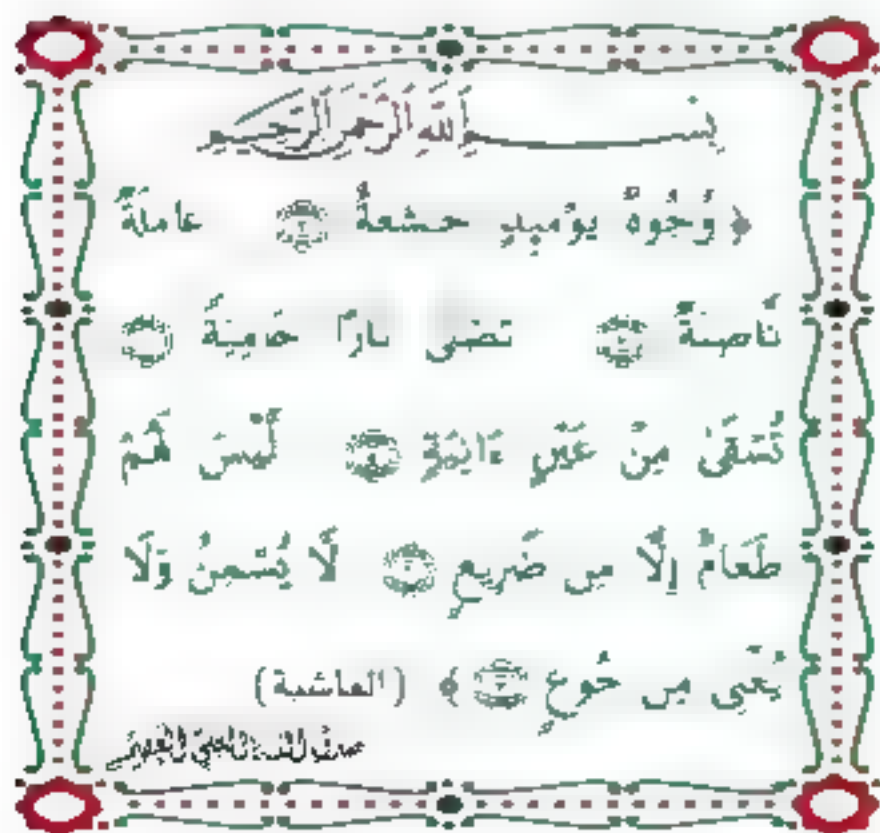 بِسْمِ اللَّهِ الرَّحْمَنِ الرَّحِيمِ
﴿ وُجُوهٌ يَوْمَئِذٍ خَـٰشِعَةٌ ٢ عَامِلَةٌ
نَّاصِبَةٌ ٣ تَصْلَىٰ نَارًا حَامِيَةً ٤
تُسْقَىٰ مِنْ عَيْنٍ ءَانِيَةٍ ٥ لَّيْسَ لَهُمْ
طَعَامٌ إِلَّا مِن ضَرِيعٍ ٦ لَّا يُسْمِنُ وَلَا
يُغْنِى مِن جُوعٍ ٧ ﴾ (الغاشية)
صدق الله العلي العظيم